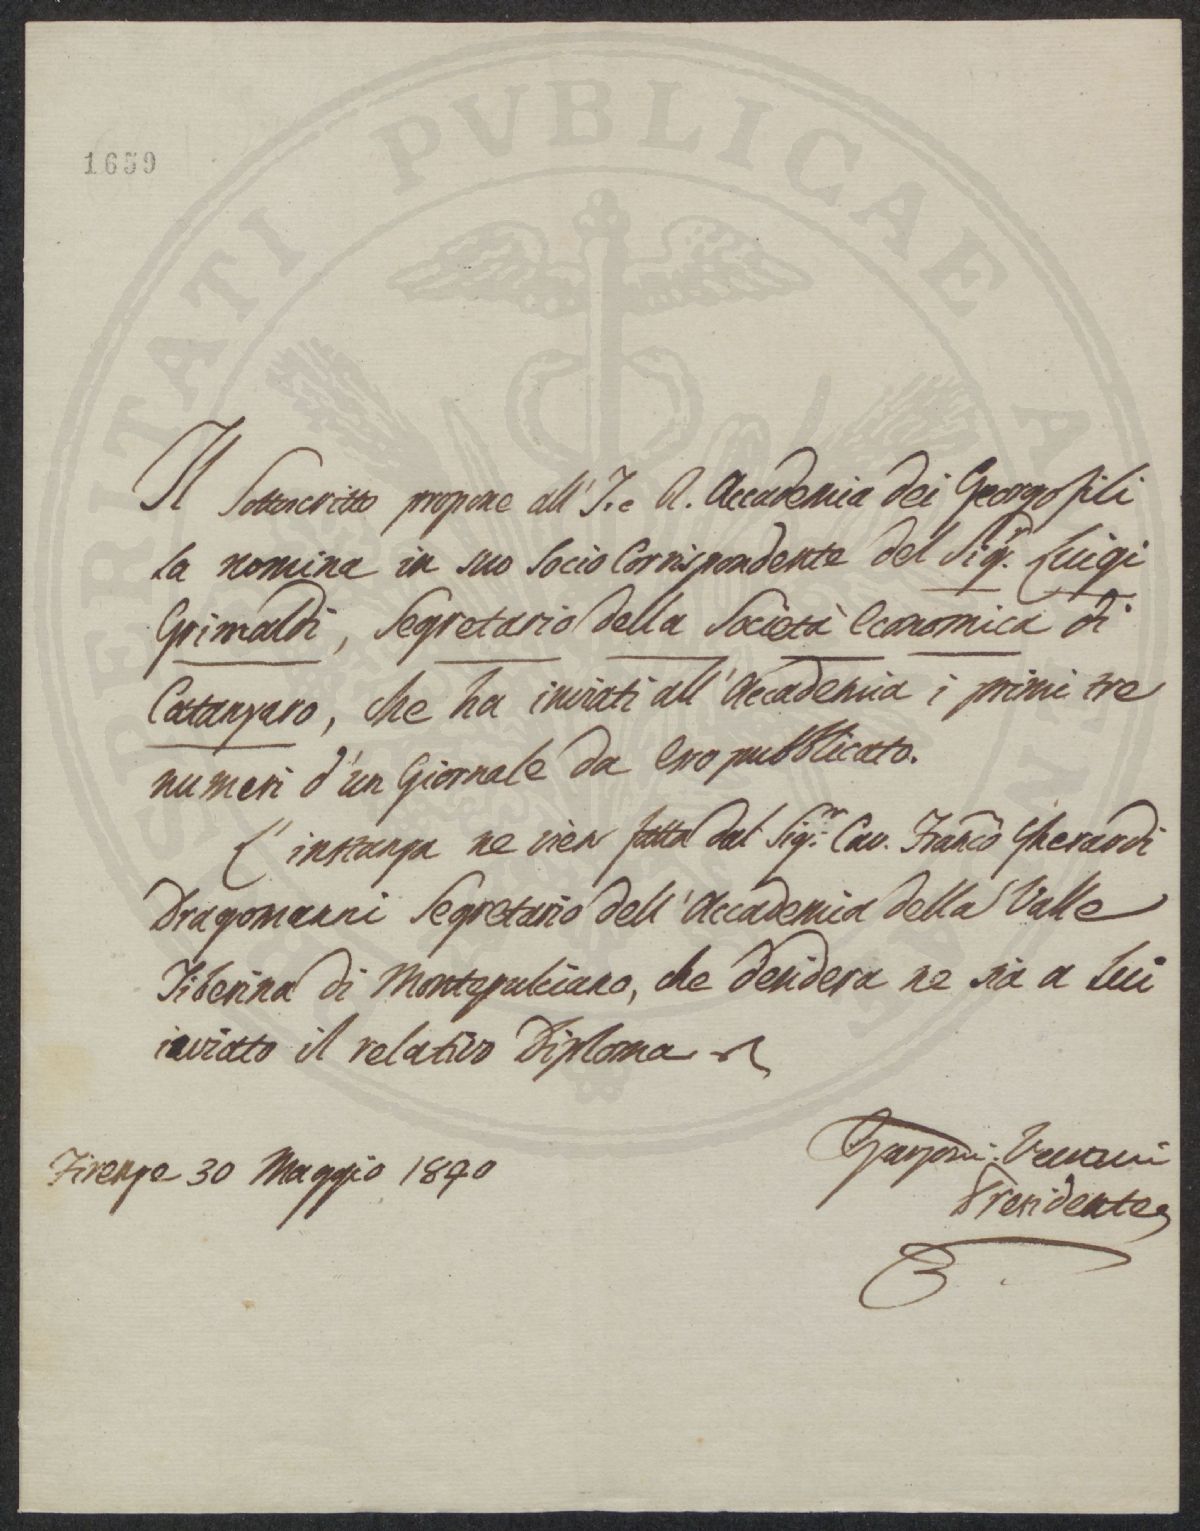 PROSPERITATI PUBLICAE AUGENDAE
1659
Il Sottoscritto propone all' I. e R. Accademia dei Georgofili
la nomina in suo Socio Corrispondente del Sigr. Luigi
Grimaldi, Segretario della Società Economica di
Catanzaro, che ha inviati all'Accademia i primi tre
numeri d'un Giornale da Esso pubblicato.
L'instanza ne vien fatta dal Sigr. Cav. Franco Gherardi
Dragomanni Segretario dell'Accademia della Valle
Tiberina di Montepulciano, che desidera ne sia a Lui
inviato il relativo Diploma
Garzoni Venturi
Firenze 30 Maggio 1840
Presidente